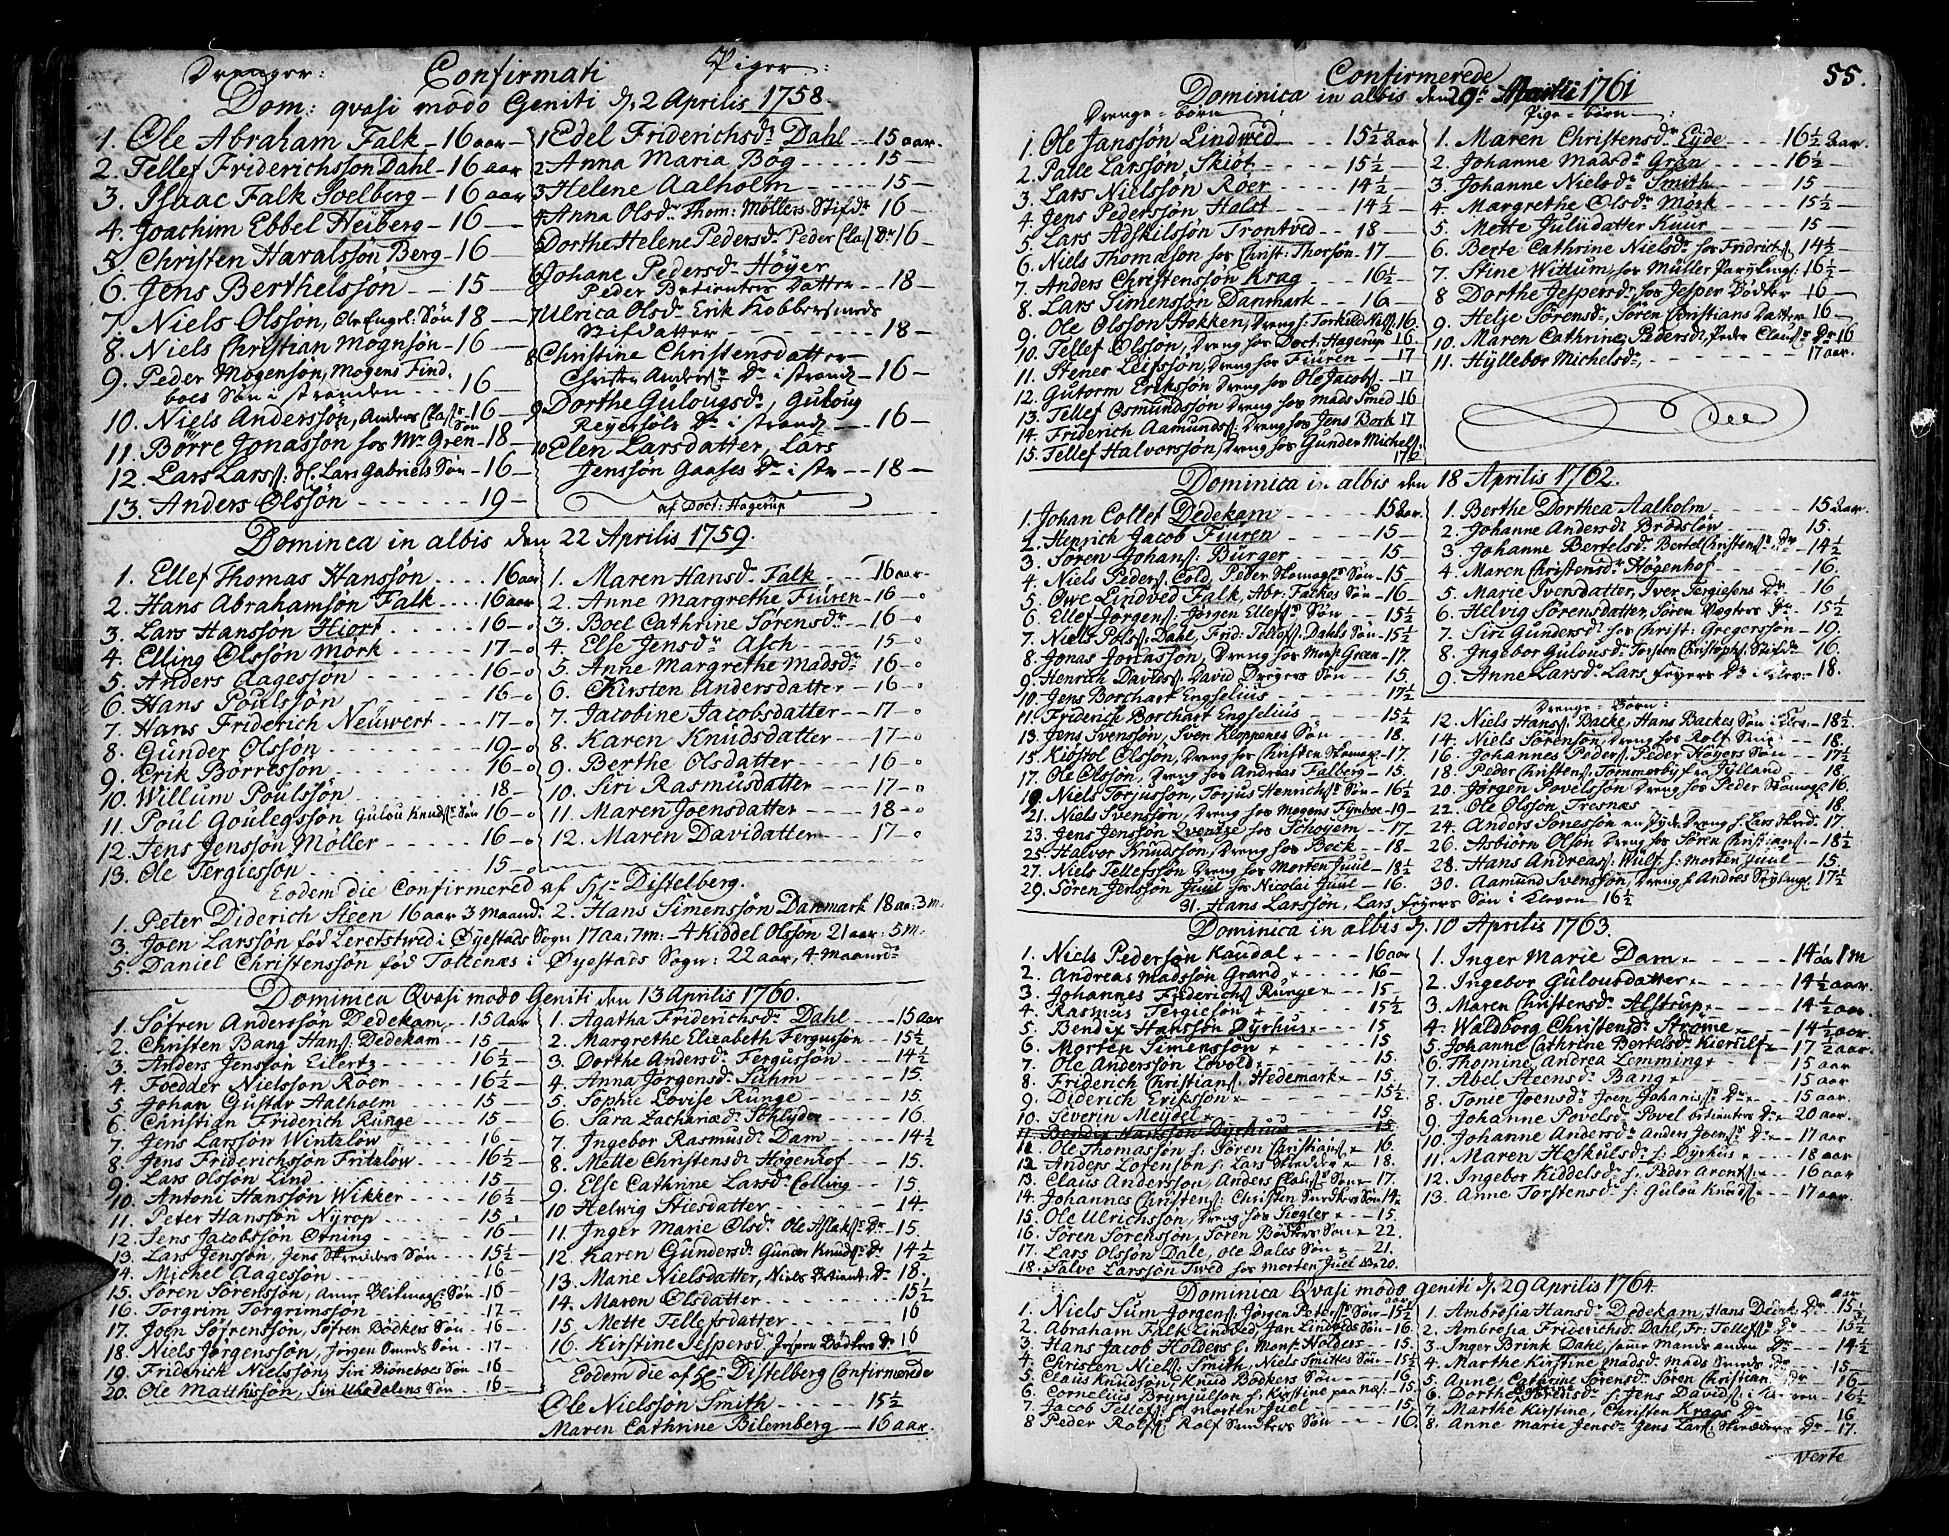 Drenger: Confirmati Piger:
Dom: qvasi modo Geniti d. 2 Aprilis 1758.
1. Ole Abraham Falk - 16 aar -
2. Tellef Friderichsson Dahl - 16 aar
3. Isaac Falk Soelberg - 16 aar
4. Joachim Ebbel Heiberg - 16 -
5. Christen Haralssøn Berg - 16
6. Jens Berthelssøn - - 15 -
7. Niels Olsson, Ole Engel: Søn 18 -
8. Niels Christian Mognsøn - 16 -
9. Peder Mogensøn, Mogens Find:
boes Søn i stranden - - 16 -
10. Niels Anderssøn, Anders Clas: Søn - 16 -
11. Børre Jonassøn hos Mr Gren - 18 -
12. Lars Lars: Sl. Lars Gabriels Søn - 16 -
13. Anders Olssøn - - - - - 19 -
1 Edel Friderichsdr Dahl - - 15 aar.
2 Anna Maria Bog - - - 15 -
3 Helene Aalholm - - - - - 15 -
4 Anna Olsdr Thom: Møllers Stifdr 16 -
5 Dorthe Helene Pedersdr Peder Clas: Dr 16 -
6 Johane Pedersd - Høyer
Peder Betienters Datter - - 18 -
7 Ulrica Olsd: Erik Kobbersmeds
Stifdatter - - - - - - 18 -
8 Christine Christensdatter -
Christen Anders: Dr i strand - 16 -
9 Dorthe Gulougsdr, Gulow
Reyersøls Dr i strand - 16 -
10 Elen Larsdatter, Lars
Jenssøn Gaases Dr i str - - 18 -
af Doct: Hagerup
Dominca in albis den 22 Aprilis 1759.
1. Ellef Thomas Hanssøn - - - 16 aar
2. Hans Abrahamsøn Falk - - 16 aar
3. Lars Hanssøn Hiort - - - 16 -
4. Elling Olssøn Mørk - - - 17 -
5. Anders Aagesøn - - - - 16 -
6. Hans Poulssøn - - - - 16 -
7. Hans Friderich Neuwert - - 17 -
8. Gunder Olssøn - - - - 19 -
9. Erik Børressøn - - - - 16 -
10. Willum Poulssøn - - - 18 -
11. Poul Goulegssøn Gulou Knuds: Søn 16 -
12. Jens Jenssøn Møller - - - 16 -
13. Ole Tergiessøn - - - - 15 -
1. Maren Hansdr Falk - - 16 aar -
2. Anne Margrethe Fiuren - 16 -
3. Boel Cathrine Sørensdr - 16 -
4. Else Jensdr Asch - - - 15 -
5. Anne Margrethe Madsdr - 16 -
6. Kirsten Andersdatter - 16 -
7. Jacobine Jacobsdatter - 17 -
8. Karen Knudsdatter - - 17 -
9. Berthe Olsdatter - - - 16 -
10. Siri Rasmusdatter - - - 17 -
11. Maren Joensdatter - - - 18 -
12. Maren Davidatter - - - 17 -
Eodem die Confirmered af Hr Distelberg.
1. Peter Diderich Steen 16 aar 3 maand. 2. Hans Simenssøn Danmark 18 aa: 3 m.
3. Joen Larssøn fød Leretstwed i Øyestads Sogn 17 aa: 7 m: - 4 Kiddel Olsson 21 aar: 5 m:
5. Daniel Christenssøn fød Toltenæs i Øyestads Sogn: 22 aar, 4 Maandr
Dominica Qvasi modo Geniti den 13 Aprilis 1760.
1. Søfren Anderssøn Dedekam - 15 aar
2. Christen Bang Hans: Dedekam - - 15 -
3. Anders Jenssøn Eilertz - - - 16½ -
4. Foedder Nielssøn Roer - - - 16½ -
5. Johan Gustav Aalholm - - - 15 -
6. Christian Friderich Runge - - 15 -
7. Jens Larssøn Wintzlow - - - 16 -
8. Jens Friderichssøn Fritzlow - - 16½ -
9. Lars Olssøn Lind - - - - 15 -
10. Antoni Hanssøn Wikker - - - 16½ -
11. Peter Hanssøn Nyrop - - - 15 -
12. Jens Jacobssøn Ørning - - - 16 -
13. Lars Jenssøn, Jens Skreders Søn - - 15½ -
14. Michel Aagessøn - - - - 16 -
15. Søren Sørenssøn, Anne Blikmag: Søn - 16 -
16. Torgrim Torgrimssøn - - - 17 -
17. Joen Søfrenssøn, Søfren Bødkers Søn - 16 -
18. Niels Jørgenssøn, Jørgen Smeds Søn - 17 -
19. Friderich Nielssøn, Siri Biørneboes Søn - 16
20. Ole Matthissøn, Siri Uhrdalens Søn - 16 -
1. Agatha Friderichsdr Dahl - - 15 aar
2. Margrethe Elizabeth Ferguison - 15½
3. Dorthe Andersdr Fergussøn - - 14½
4. Anna Jørgensdr Suhm - - - 15.
5. Sophie Lovise Runge - - - 15.
6. Sara Zachariædr Schlyder - - 16.
7. Ingebor Rasmusdr Dam - - - 14½
8. Mette Christensdr Høgenhof - 15.
9. Else Cathrine Larsdr Colling - 15.
10 Helwig Stiesdatter - - - - 14.
11. Inger Marie Olsdr Ole Aslaks: Dr - 15.
12. Karen Gundersdr Gunder Knuds: Dr 14½
13. Marie Nielsdatter, Niels Betient: Dr 18.
14. Maren Olsdatter - - - - 15½
15. Mette Tellefsdatter - - - - 16
16. Kirstine Jespersd: Jesper Bødkers Dr 16
Eodem die af Hr Distelberg Confirmerede
Ole Nielssøn Smith - - - 15½
Maren Cathrine Bilemberg - 16 aar.
55.
Confirmerede
Dominica in albis den 29de Martii 1761
Drenge-børn: Pige-børn:
1. Ole Janssøn Lindwed - - - 15½ aar
2. Palle Larssøn, Skiöt - - - 15½ -
3. Lars Nielssøn Roer - - - 14½ -
4. Jens Pederssøn Halst - - - 14½ -
5. Lars Adskilssøn Trontved - - 18 -
6. Niels Thomason hos Christ: Thorsøn - 17 -
7. Anders Christenssøn Krag - - 16½ -
8. Lars Simenssøn Danmark - - 16 -
9. Ole Olssøn Stokken, Dreng h: Torkild Nils: 16.
10. Tellef Olssøn, Dreng hos Doct: Hagerup 16.
11. Stener Leifssøn, Dreng hos Fiuren - - 17
12. Gutorm Erikssøn Dreng hos Ole Jacobs: - 17
13. Tellef Osmundssøn Dreng hos Mads Smed 16
14. Friderich Aamunds: Dreng hos Jens Bork 17
15. Tellef Halvorssøn, Dreng hos Gunder Michels: 17½
1. Maren Christensdr Eyde - - - 16½ aar.
2. Johanne Madsdr Gran - - - 16½
3. Johanne Nielsdr Smith - - - 15 -
4. Margrethe Olsdr Mørk - - - 15½ -
5. Mette Juliidatter Kuur - - - 15 -
6. Berte Cathrine Nielsdr hos Fridrichs: 14½ -
7. Stine Wittum, hos Müller - 16½ -
8 Dorthe Jespersdr, hos Jesper Bødker - 16 -
9. Helje Sørensdr, Søren Christians Datter - 16 -
10. Maren Cathrine, Pedersdr, Peder Claus: Dr 16
11. Hyllebor Michelsdr, - - - - 17 aar.
Dominica in albis den 18 Aprilis 1762.
1. Johan Collet Dedekam - - - 15 aar.
2. Henrich Jacob Fiuren - - - 15 -
3. Søren Johans: Burger - - - 15
4. Niels Peders: Eold, Peder Skomag:s Søn - 15 -
5. Owe Lindved Falk Abr: Falkes Søn - 16 -
6. Ellef Jørgens: Jørgen Ellefs: Søn - - 15½
7. Niels Phls: Dahl, Frid: Tellefs: Dahls Søn - 15½
8. Jonas Jonassøn, Dreng hos Mons: Græn - 17
9. Henrich Davids: David Dreyers Søn - - 15.
10. Jens Borchart Engselius - - - 17½
11. Friderich Borchart Engselius - - 15½
13. Jens Svenssøn, Sven Kloppenes Søn - 18.
15. Kiøstol Olssøn, Dreng hos Christen Skomag: - 17.
17. Ole Olssøn, Dreng hos Andreas Falberg - 15.
19. Niels Torjussøn, Torjus Henrichs: Søn - 16½
21. Niels Svenssøn, Dreng hos Mogens Fynboe - 19 -
23. Jens Jenssøn Qventze hos Schøyem - - 17 -
25. Halvor Knudssøn, Dreng hos Beck - - 18 -
27. Niels Tellefssøn Dreng hos Morten Juul - 18½
29. Søren Jenssøn Juul hos Nicolai Juul - 16.
31. Hans Larssøn, Lars Freyers Søn i Kleven - 16½
1. Berthe Dorthea Aalholm - - 15 aar.
2. Johanne Andersdr Brodsløw - 15.
3. Johanne Bertelsdr Bertel Christens: Dr - 14½
4. Maren Christensdr Høgenhof - 16.
5. Marie Ivensdatter, Iver Tergiesens Dr 16
6. Helvig Sørensdatter, Søren Vægters Dr 15½
7. Siri Gundersdr hos Christ: Gregerssøn - 19.
8. Ingebor Gulousdr Torsten Christophs: Stifdr 16.
9. Anne Larsdr Lars Freyers Dr i Klev: - 18.
Drenge-Børn:
12. Niels Hans: Backe, Hans Backes Søn i Klev: - 18½
14. Niels Sørensøn, Dreng hos Rolf Smed - - 18.
16. Johannes Peders: Peder Høyers Søn - - 17½
18. Peder Christens: Tommerby fra Jylland - - 18.
20. Jørgen Povelssøn Dreng hos Peder Skomag: 16.
22. Ole Olssøn Tresnæs - - - - 18.
24. Anders Sonessøn en Jyde Dreng h: Lars Skred: 17.
26. Asbiorn Olssøn Dreng hos Søren Christians: - 18½
28. Hans Andreas: Wulf h: Morten Juul - - 15.
30. Aamund Svenssøn, Dreng h Andres Seylmag: 17½
Dominica in albis d. 10 Aprilis 1763.
1. Niels Pedersøn Kaudal - - - 16 aar
2. Andreas Madssøn Grand - - - 16 -
3. Johannes Friderichs: Runge - - 15
4. Rasmus Tergiesøn - - - 15½
5. Bendix Hanssøn Dyrhus - - 15
6. Morten Simenssøn - - - 15
7. Ole Anderssøn Lovold - - - 15.
8. Friderich Christians: Hedemark - 15.
9. Diderich Erikssøn - - - 15½
10. Severin Meydel - - - 15
11 Bendix Hanssøn Dyrhuus - - - 15
11. Ole Thomassøn h: Søren Christians: - 16
12. Anders Lorenssøn h: Lars Skredder - 18.
13. Claus Anderssøn, Anders Claus: Søn - 17.
14. Johannes Christens: Christen Snedkers Søn 14½
15. Ole Ulrichssøn, Dreng hos Siegler - - 15.
16. Søren Sørenssøn, Søren Bødkers Søn - 22.
17. Lars Olssøn Dale, Ole Dales Søn - 21.
18. Salve Larssøn Twed hos Morten Juel - 20.
1. Inger Marie Dam - - - - 14 aar 1 m
2. Ingebor Gulousdatter - - - 14½ aar.
3. Maren Christensdr Alstrup - - 14½ aar.
4. Waldborg Christensdr Strøme - - 14½ aar
5. Johanne Cathrine Bertelsdr Kierulf - 17½ aar.
6. Thomine Andrea Lemming - - - 15 aar
7. Abel Steensdr Bang - - - 15 aar
8. Tonie Joensdr Joen Johanis: Dr - 15 aar.
9. Johanne Povelsdr Povel betienters Dr - 20 aar.
10. Johanne Andersdr Anders Joens: Dr - 17 aar
11. Maren Hofkulsdr h: Dyrhus - - 18 aar
12. Ingebor Kiddelsdr h: Peder Arents: - 16 aar
13. Anne Torstensdr h: Gulou Knuds: - 17 aar
Dominica Qvasi modo geniti d. 29 Aprilis 1764.
1. Niels Sum Jørgens: Jørgen Peters: Søn - 15½
2. Abraham Falk Lindved, Jan Lindveds Søn - 16.
3. Hans Jacob Holders h: Mons: Holders - 15.
4. Christen Niels: Smith, Niels Smittes Søn - 15½
5. Claus Knudssøn, Knud Bødkers Søn - - 16
6. Cornelius Brynjulssøn h: Kirstine paa Nes: - 15.
7. Jacob Tellefs: h: Morten Juel - - 15
8 Peder Rolfs: Rolf Smedkers Søn - - 16
1. Ambrosia Hansdr Dedekam, Hans Dedek: Dr 15½
2. Ambrosia Friderichsdr Dahl, Fr: Tellefs: Dr 15½
3. Inger Brink Dahl, samme Mands anden Dr - 14½
4. Marthe Kirstine Madsdr Mads Smeds Dr 15 -
5. Anne Cathrine Sørensdr Søren Christians: Dr 16 -
6. Dorthe Sørensdr h: Jens Davids: i Kleven - 16½
7. Marthe Kirstine, Christen Krags Dr - 16
8. Anne Marie Jensdr Jens Lars: Skræders Dr - 17.
Verte